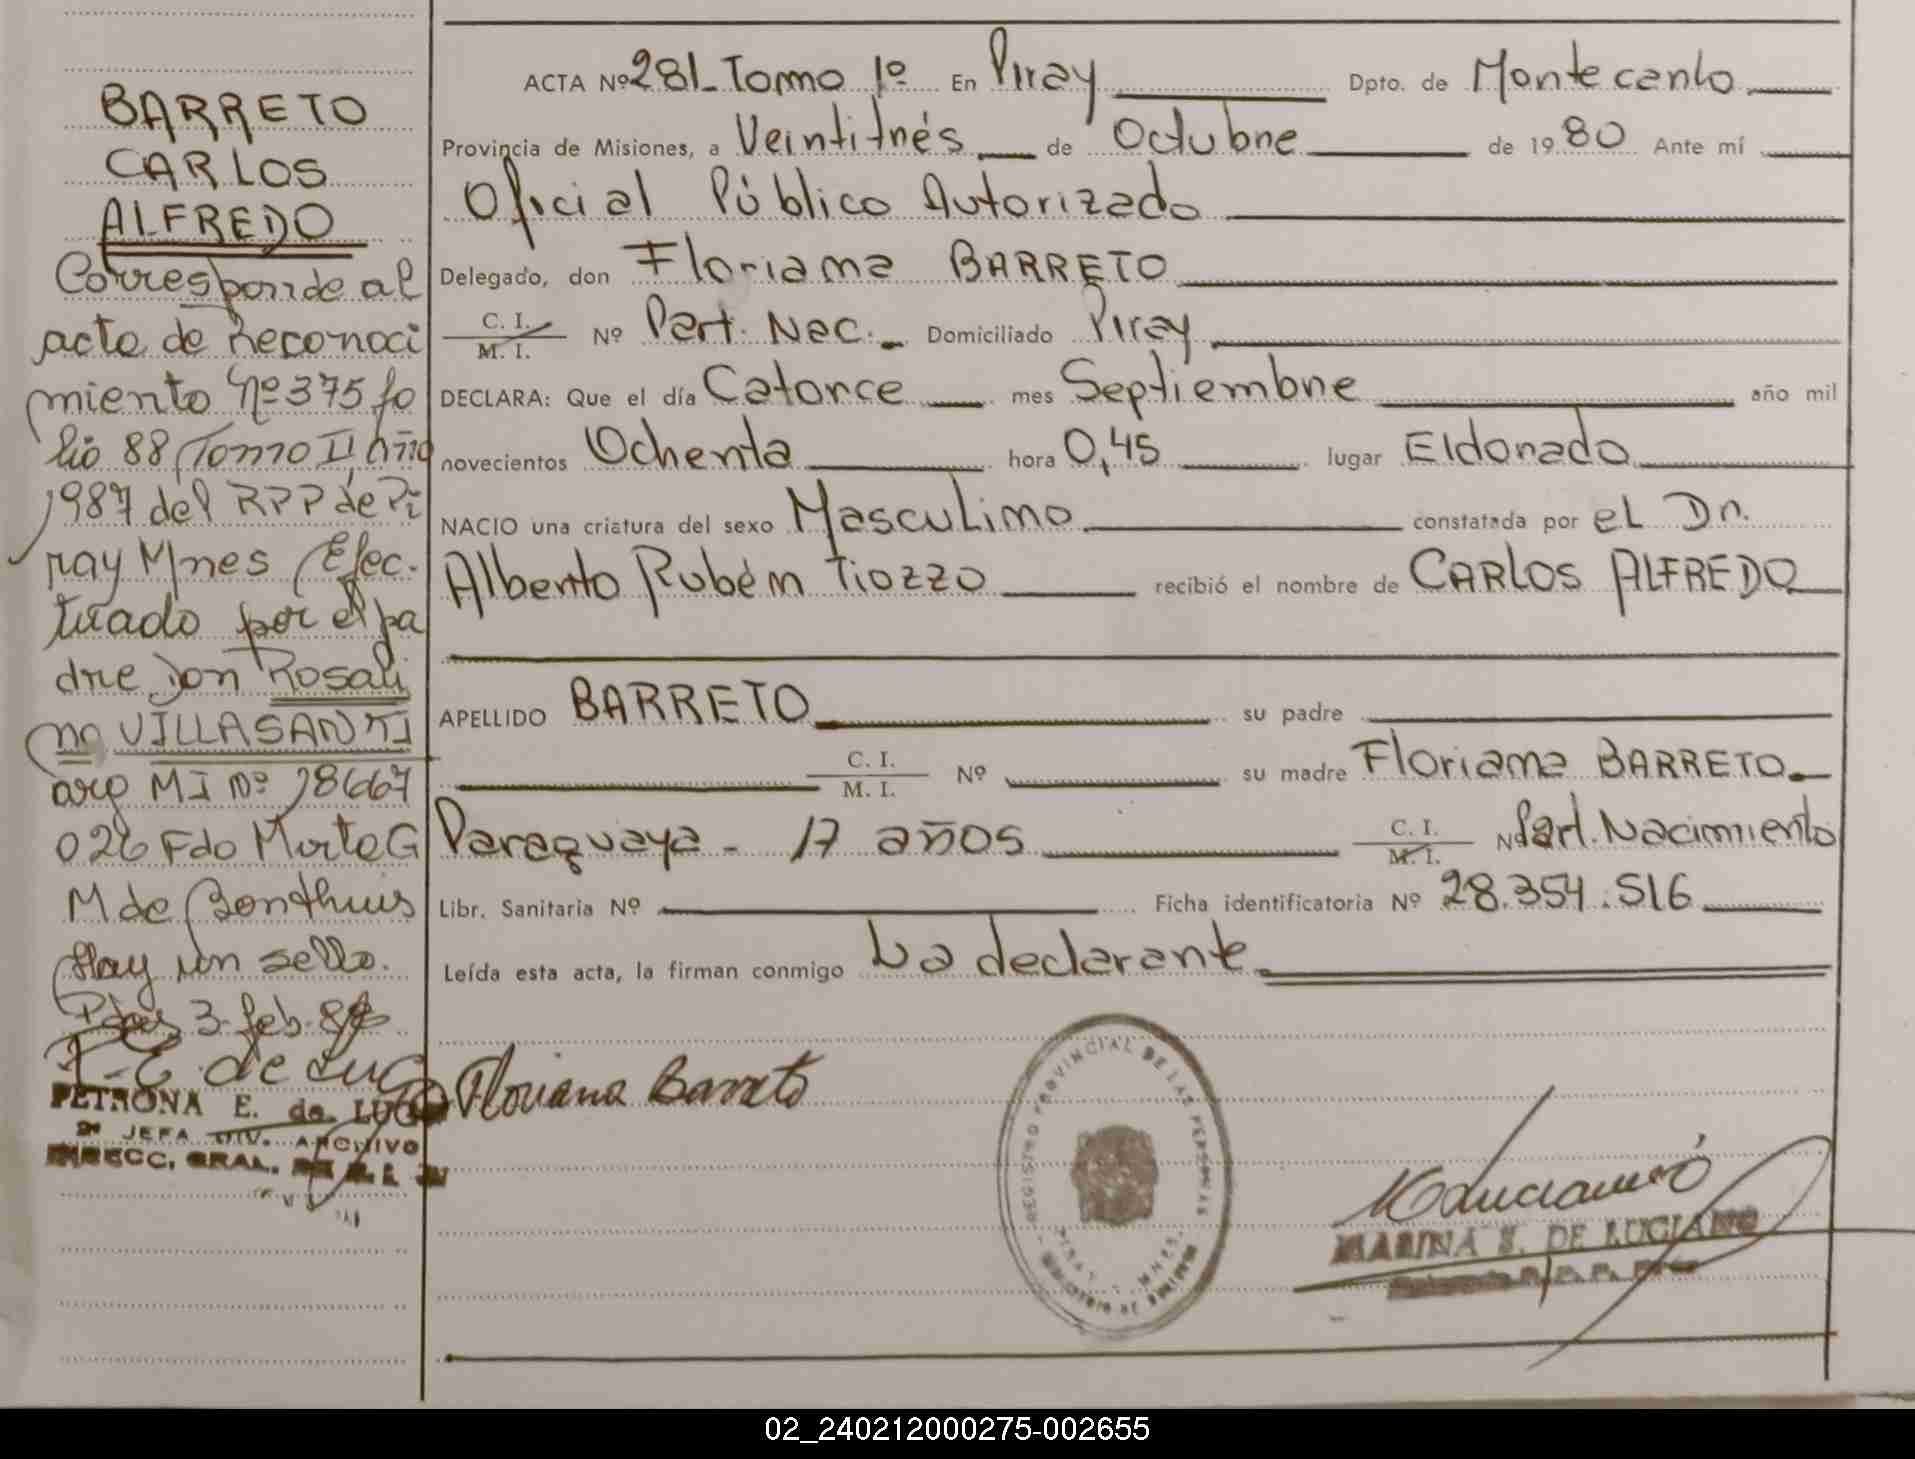 BARRETO
CARLOS
ALFREDO
Corresponde al
acta de Reconoci
miento Nº 375 fo
lio 88 Tomo II año
1987 del RPP de Pi
ray Mnes Efec-
tuado por el pa
dre don Rosali
no VILLASANTI
arg MI Nº 18667
026 Fdo Mirta G
M de Bonthuis
Hay un sello.
Pdas 3-feb-88
PETRONA E. de LUGO
2ª JEFA DIV. ARCHIVO
DIRECC. GRAL.
ACTA Nº 281- Tomo 1º En Piray Dpto. de Montecarlo
Provincia de Misiones, a Veintitrés de Octubre de 19 80 Ante mí
Oficial Público Autorizado
Delegado, don Floriana BARRETO
C. I. / M. I. Nº Part. Nac. Domiciliado Piray
DECLARA: Que el día Catorce mes Septiembre año mil
novecientos Ochenta hora 0,45 lugar Eldorado
NACIO una criatura del sexo Masculino constatada por el Dr.
Alberto Rubén Tiozzo recibió el nombre de CARLOS ALFREDO
APELLIDO BARRETO su padre
C. I. / M. I. Nº su madre Floriana BARRETO
Paraguaya - 17 años C. I. / M. I. Nº Part. Nacimiento
Libr. Sanitaria Nº Ficha identificatoria Nº 28.354.516
Leída esta acta, la firman conmigo La declarante
Floriana Barreto
REGISTRO PROVINCIAL DE LAS PERSONAS
PIRAY - MNES.
MARINA S. DE LUCIANO
02_240212000275-002655